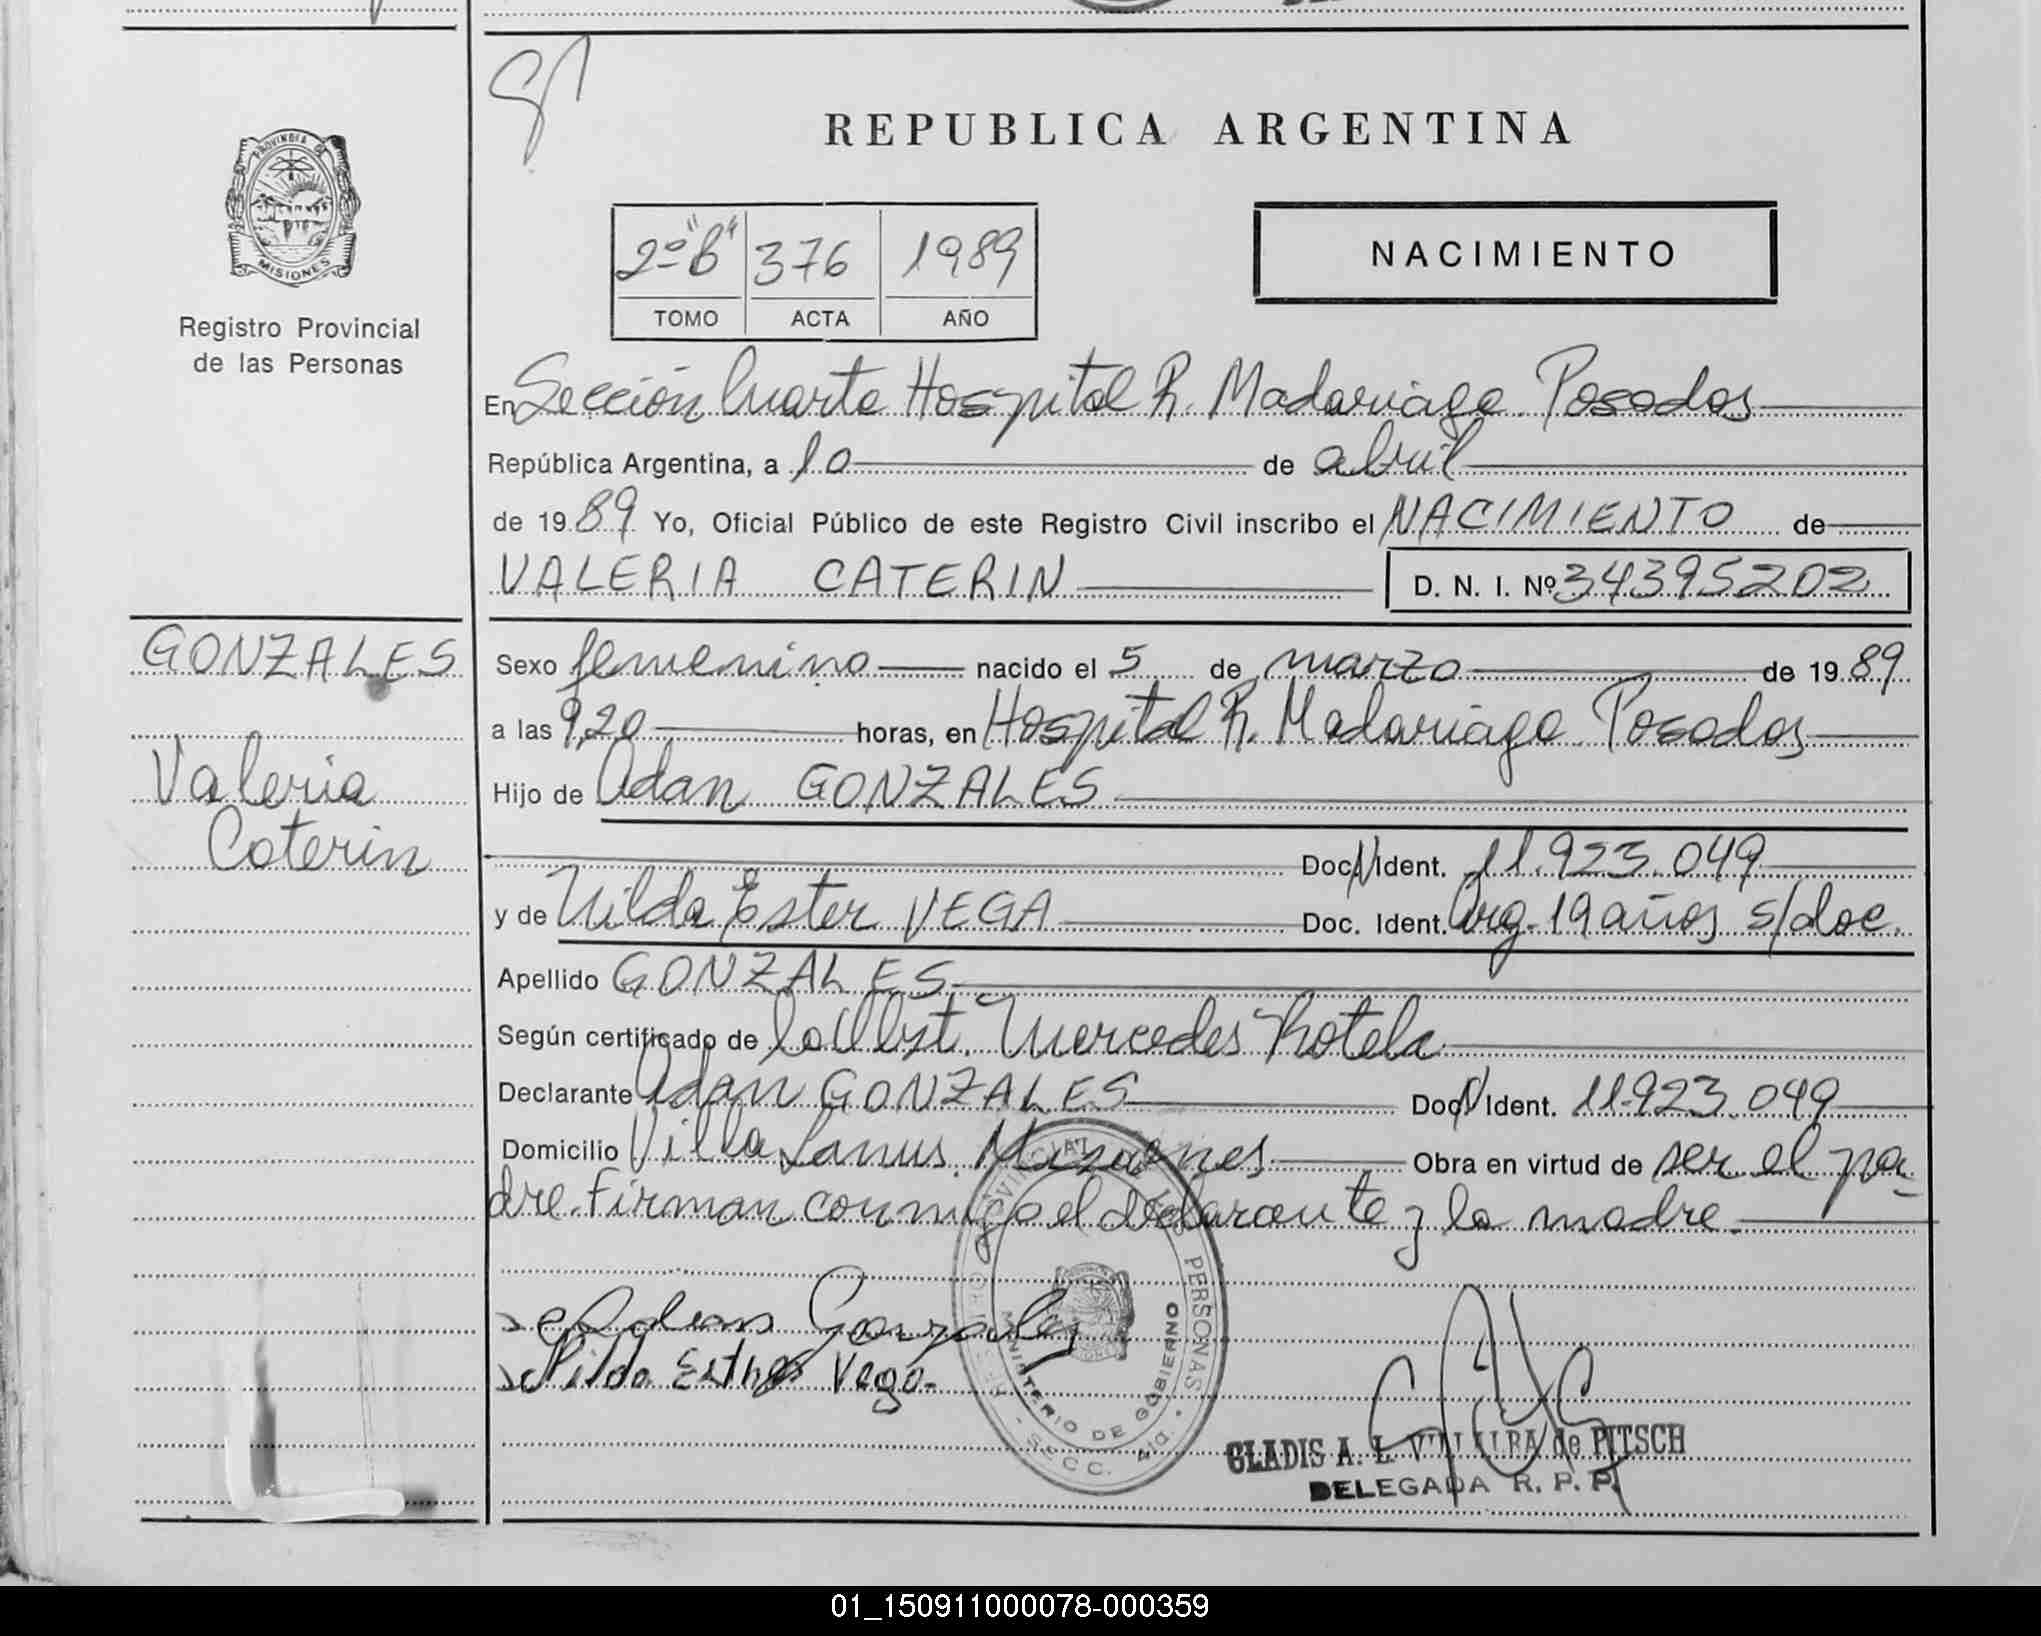 REPUBLICA ARGENTINA
PROVINCIA DE
MISIONES
Registro Provincial
de las Personas
2º "B" 376 1989
TOMO ACTA AÑO
NACIMIENTO
En Sección Cuarta Hospital R. Madariaga Posadas
República Argentina, a 10 de abril
de 1989 Yo, Oficial Público de este Registro Civil inscribo el NACIMIENTO de
VALERIA CATERIN D. N. I. Nº 34395202
GONZALES
Valeria
Caterin
Sexo femenino nacido el 5 de marzo de 1989
a las 9,20 horas, en Hospital R. Madariaga Posadas
Hijo de Adan GONZALES
Doc. N Ident. 11.923.049
y de Nilda Ester VEGA Doc. Ident. Arg. 19 años s/doc.
Apellido GONZALES
Según certificado de la Obst. Mercedes Rotela
Declarante Adan GONZALES Doc. N Ident. 11.923.049
Domicilio Villa Lanus Misiones Obra en virtud de ser el pa-
dre. Firman conmigo el declarante y la madre.
Adan Gonzales
Nilda Esther Vega
REGISTRO PROVINCIAL DE LAS PERSONAS
MINISTERIO DE GOBIERNO
SECC. 4ta
GLADIS A. L. VILLALBA de PITSCH
DELEGADA R. P. P.
01_150911000078-000359